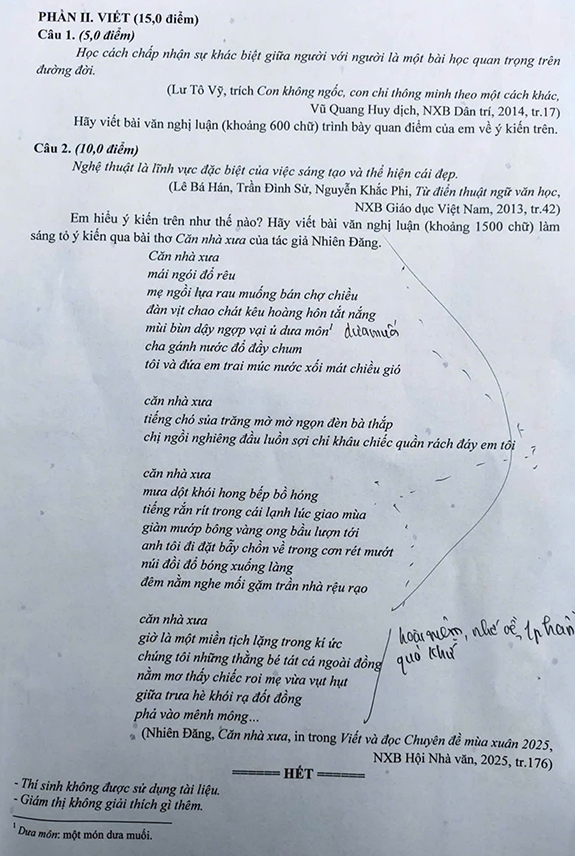 PHẦN II. VIẾT (15,0 điểm)
Câu 1. (5,0 điểm)
Học cách chấp nhận sự khác biệt giữa người với người là một bài học quan trọng trên
đường đời.
(Lư Tô Vỹ, trích Con không ngốc, con chỉ thông minh theo một cách khác,
Vũ Quang Huy dịch, NXB Dân trí, 2014, tr.17)
Hãy viết bài văn nghị luận (khoảng 600 chữ) trình bày quan điểm của em về ý kiến trên.
Câu 2. (10,0 điểm)
Nghệ thuật là lĩnh vực đặc biệt của việc sáng tạo và thể hiện cái đẹp.
(Lê Bá Hán, Trần Đình Sử, Nguyễn Khắc Phi, Từ điển thuật ngữ văn học,
NXB Giáo dục Việt Nam, 2013, tr.42)
Em hiểu ý kiến trên như thế nào? Hãy viết bài văn nghị luận (khoảng 1500 chữ) làm
sáng tỏ ý kiến qua bài thơ Căn nhà xưa của tác giả Nhiên Đăng.
Căn nhà xưa
mái ngói đổ rêu
mẹ ngồi lựa rau muống bán chợ chiều
đàn vịt chao chát kêu hoàng hôn tắt nắng
mùi bùn dậy ngợp vại ủ dưa môn¹ dưa muối
cha gánh nước đổ đầy chum
tôi và đứa em trai múc nước xối mát chiều gió
căn nhà xưa
tiếng chó sủa trăng mờ mờ ngọn đèn bà thắp
chị ngồi nghiêng đầu luồn sợi chỉ khâu chiếc quần rách đáy em tôi
căn nhà xưa
mưa dột khói hong bếp bồ hóng
tiếng rắn rít trong cái lạnh lúc giao mùa
giàn mướp bông vàng ong bầu lượn tới
anh tôi đi đặt bẫy chồn về trong cơn rét mướt
núi đồi đổ bóng xuống làng
đêm nằm nghe mối gặm trần nhà rệu rạo
căn nhà xưa
giờ là một miền tịch lặng trong kí ức
chúng tôi những thằng bé tát cá ngoài đồng
nằm mơ thấy chiếc roi mẹ vừa vụt hụt
giữa trưa hè khói rạ đốt đồng
phả vào mênh mông...
hoài niệm, nhớ về 1 phần
quá khứ
(Nhiên Đăng, Căn nhà xưa, in trong Viết và đọc Chuyên đề mùa xuân 2025,
NXB Hội Nhà văn, 2025, tr.176)
====== HẾT ======
- Thí sinh không được sử dụng tài liệu.
- Giám thị không giải thích gì thêm.
¹ Dưa môn: một món dưa muối.